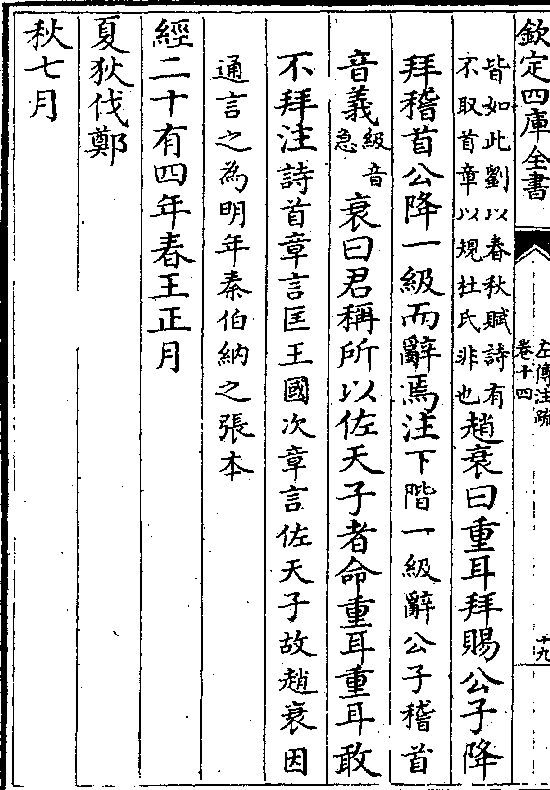 欽定四庫全書
左傳注疏
卷十四
十九
皆如此劉以春秋賦詩有
不取首章以規杜氏非也
趙衰曰重耳拜賜公子降
拜稽首公降一級而辭焉注下階一級辭公子稽首
音義級音
急
衰曰君稱所以佐天子者命重耳重耳敢
不拜注詩首章言匡王國次章言佐天子故趙衰因
通言之為明年秦伯納之張本
經二十有四年春王正月
夏狄伐鄭
秋七月